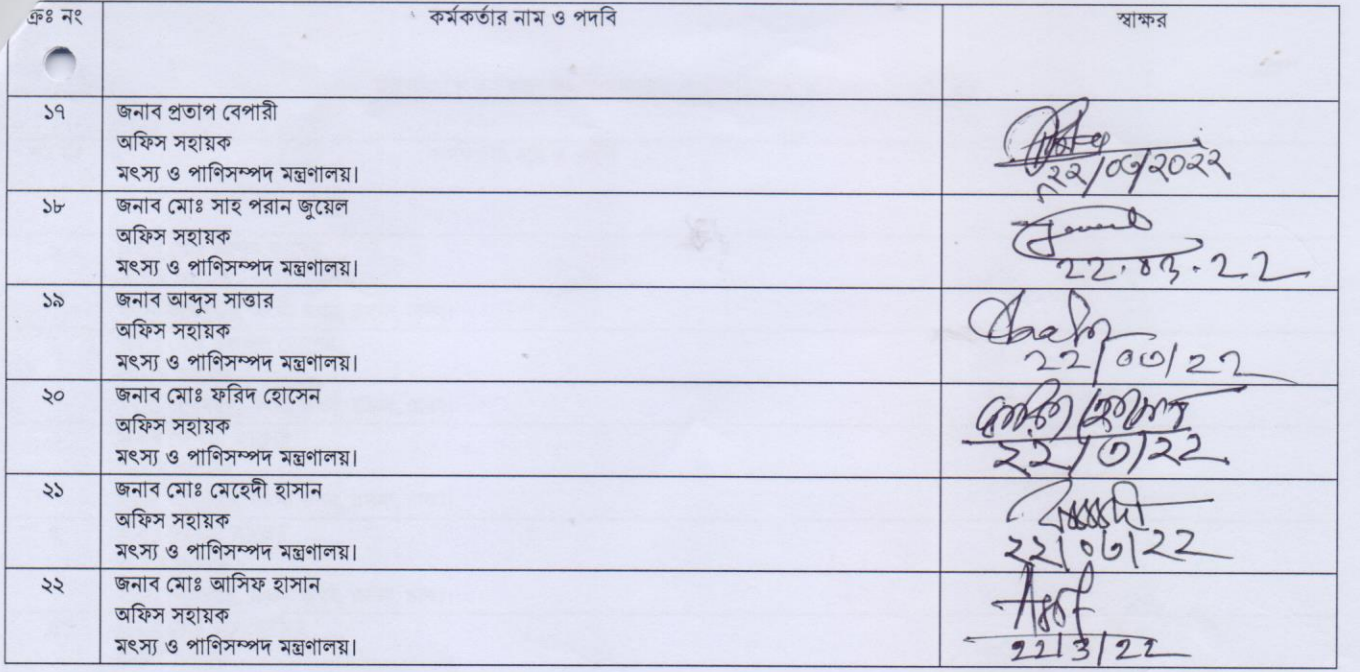 ক্রঃ নং কর্মকর্তার নাম ও পদবি স্বাক্ষর
১৭ জনাব প্রতাপ বেপারী
অফিস সহায়ক
মৎস্য ও পাণিসম্পদ মন্ত্রণালয়। ২২/০৩/২০২২
১৮ জনাব মোঃ সাহ পরান জুয়েল
অফিস সহায়ক Jewel
মৎস্য ও প্রাণিসম্পদ মন্ত্রণালয়। 22.03.22
১৯ জনাব আব্দুস সাত্তার
অফিস সহায়ক
মৎস্য ও পাণিসম্পদ মন্ত্রণালয়। ২২/০৩/২২
২০ জনাব মোঃ ফরিদ হোসেন
অফিস সহায়ক
মৎস্য ও পাণিসম্পদ মন্ত্রণালয়। ২২/৩/২২
২১ জনাব মোঃ মেহেদী হাসান
অফিস সহায়ক
মৎস্য ও পাণিসম্পদ মন্ত্রণালয়। ২২/০৩/২২
২২ জনাব মোঃ আসিফ হাসান
অফিস সহায়ক
মৎস্য ও পাণিসম্পদ মন্ত্রণালয়। 22/3/22